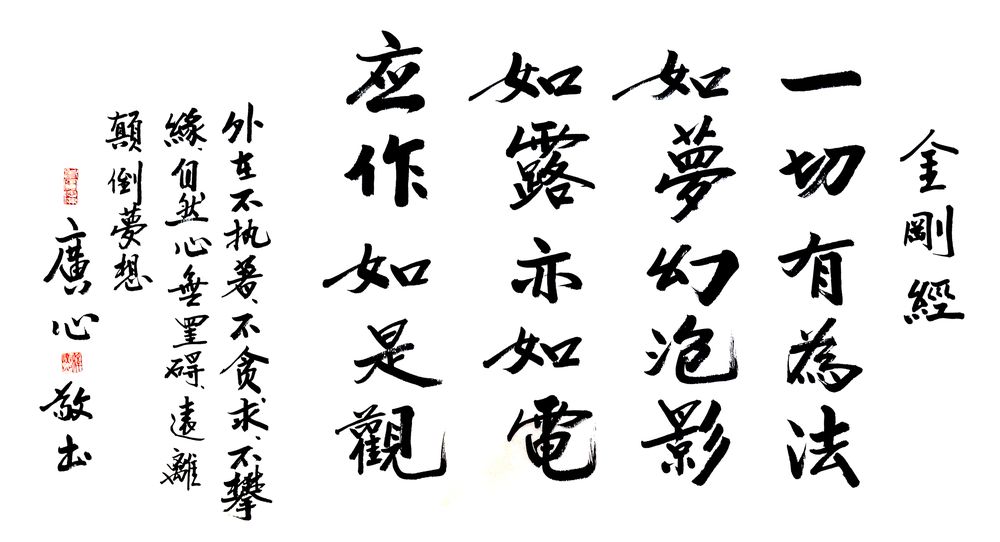 金剛經
一切有為法
如夢幻泡影
如露亦如電
应作如是觀
外在不执著、不贪求、不攀
緣、自然心無罣碍、遠離
顛倒夢想
廣心敬书